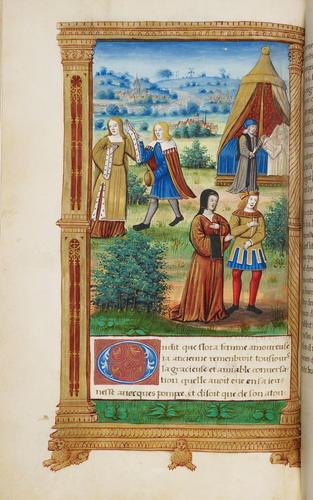 On dit que flora femme amoureuse
ia ancienne remembroit tousiours
la gracieuse et amiable conversa
tion quelle avoit eue en sa ieu
nesse avecques pompee, et disoit que de son atou